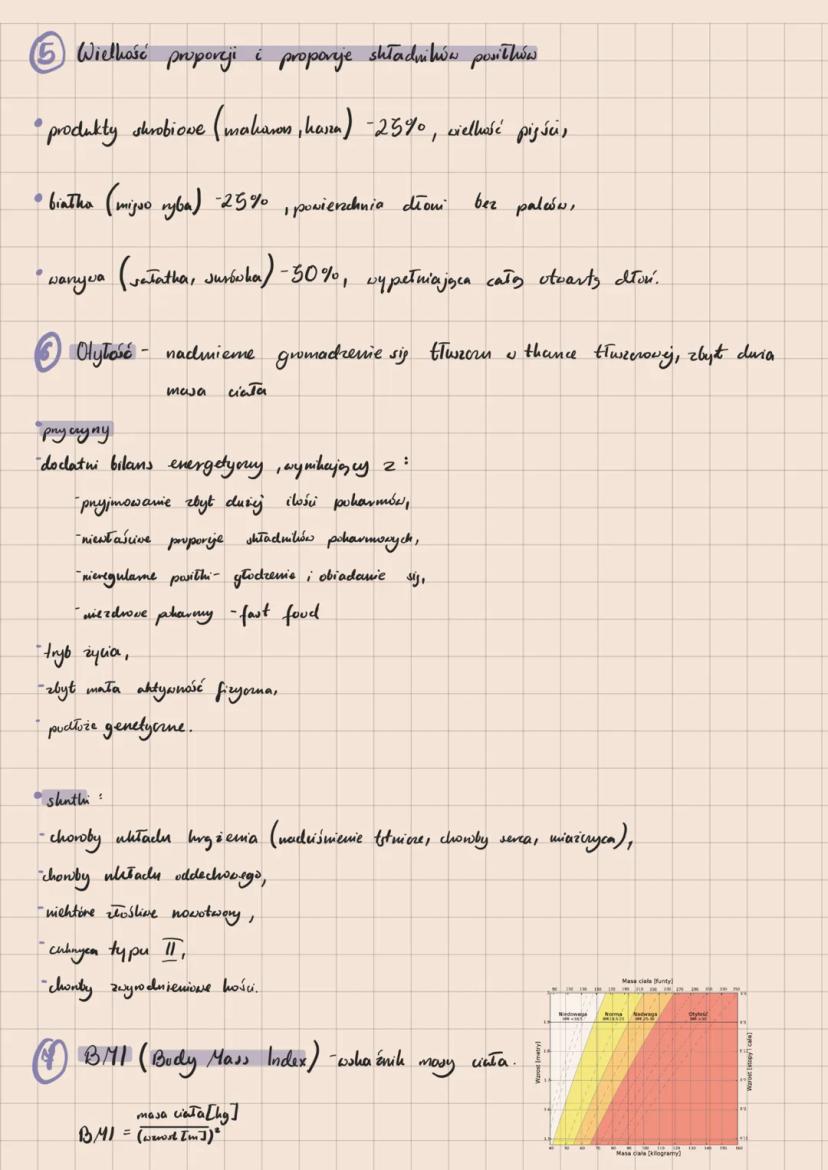 5 Wielkość proporcji i proporcje składników posiłków
• produkty skrobiowe (makaron, kasza) -25%, wielkość pięści,
• białka (mięso ryba) -25%, powierzchnia dłoni bez palców,
• warzywa (sałatka, surówka) -50%, wypełniająca całą otwartą dłoń.
6 Otyłość - nadmierne gromadzenie się tłuszczu w tkance tłuszczowej, zbyt duża
masa ciała
• przyczyny
- dodatni bilans energetyczny, wynikający z:
- przyjmowanie zbyt dużej ilości pokarmów,
- niewłaściwe proporcje składników pokarmowych,
- nieregularne posiłki - głodzenie i objadanie się,
- niezdrowe pokarmy - fast food
- tryb życia,
- zbyt mała aktywność fizyczna,
- podłoże genetyczne.
• skutki:
- choroby układu krążenia (nadciśnienie tętnicze, choroby serca, miażdżyca),
- choroby układu oddechowego,
- niektóre złośliwe nowotwory,
- cukrzyca typu II,
- choroby zwyrodnieniowe kości.
7 BMI (Body Mass Index) - wskaźnik masy ciała.
BMI = masa ciała [kg]
(wzrost [m])²
Masa ciała [funty]
Niedowaga Norma Nadwaga Otyłość
Wzrost [metry]
Wzrost [stopy' cale]
Masa ciała [kilogramy]